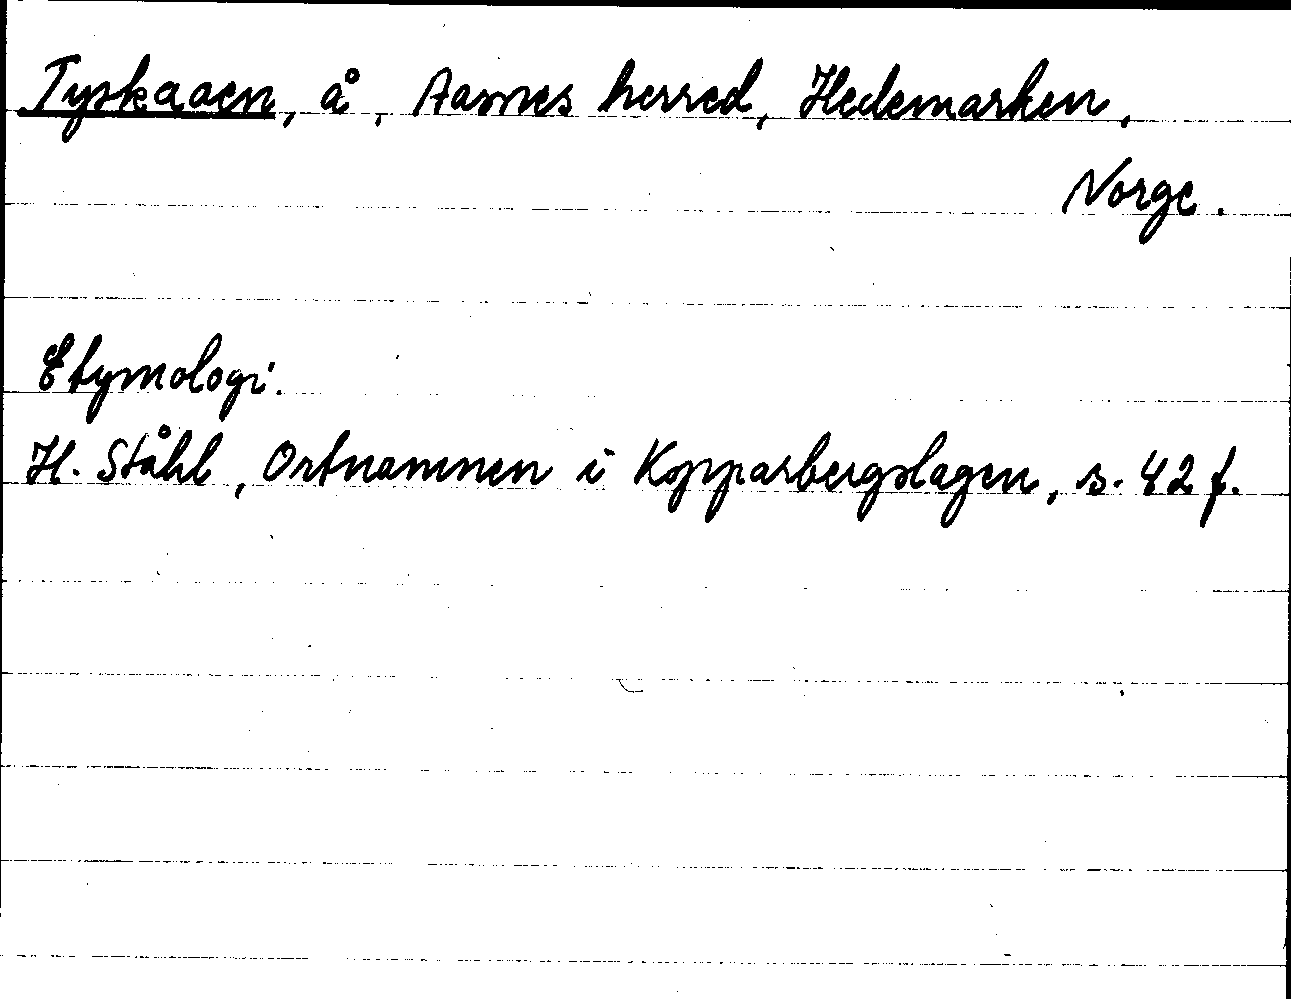 Tyskaaen, å, Aasnes herred, Hedemarken,
Norge.
Etymologi.
H. Ståhl, Ortnamnen i Kopparbergslagen, s. 42 f.